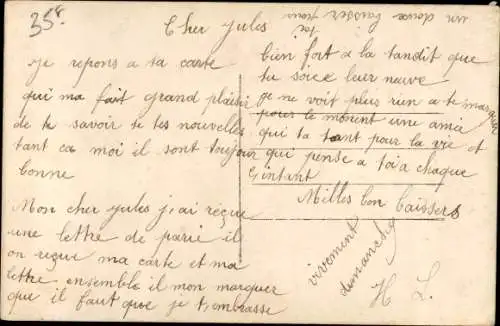 35F
Cher Jules
un douse baisser pour
toi
Je repons a ta carte
qui ma fait grand plaisir
de te savoir te tes nouvelles
tant ca moi il sont toujour
bonne
Mon cher Jules j,ai reçue
une lettre de parie il
on reçue ma carte et ma
lettre ensemble il mon marquer
que il faut que je t,embrasse
bien fort a la tandit que
tu soice leur neuve
ge ne voit plus rien a te marquer
pour le moment une amie
qui ta tant pour la vie et
qui pense a toi a chaque
instant
Milles bon baissers
vivement
dimanche
H L.